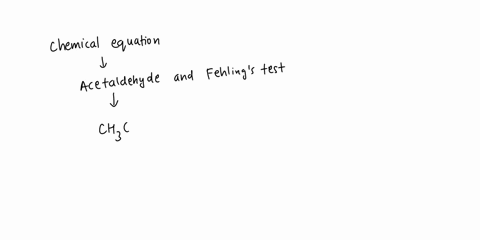 Chemical equation
↓
Acetaldehyde and Fehling's test
↓
CH₃C